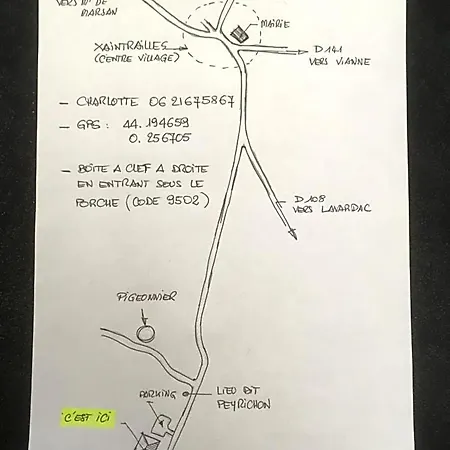 VERS Mt DE
MARSAN
MAIRIE
XAINTRAILLES
(CENTRE VILLAGE)
D 141
VERS VIANNE
– CHARLOTTE 06 21675867
– GPS : 44. 194659
0. 256705
– BOÎTE A CLEF A DROITE
EN ENTRANT SOUS LE
PORCHE (CODE 9502)
D 108
VERS LAVARDAC
PIGEONNIER
PARKING
LIEU DIT
PEYRICHON
C'EST ICI